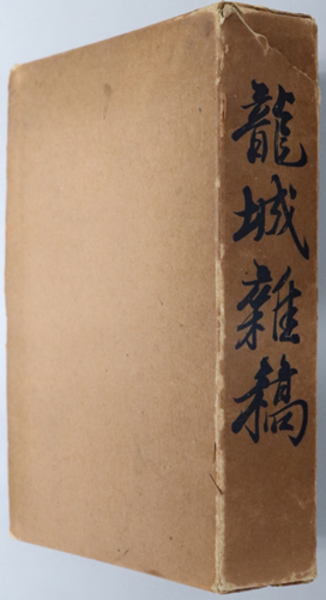 龍城雜稿